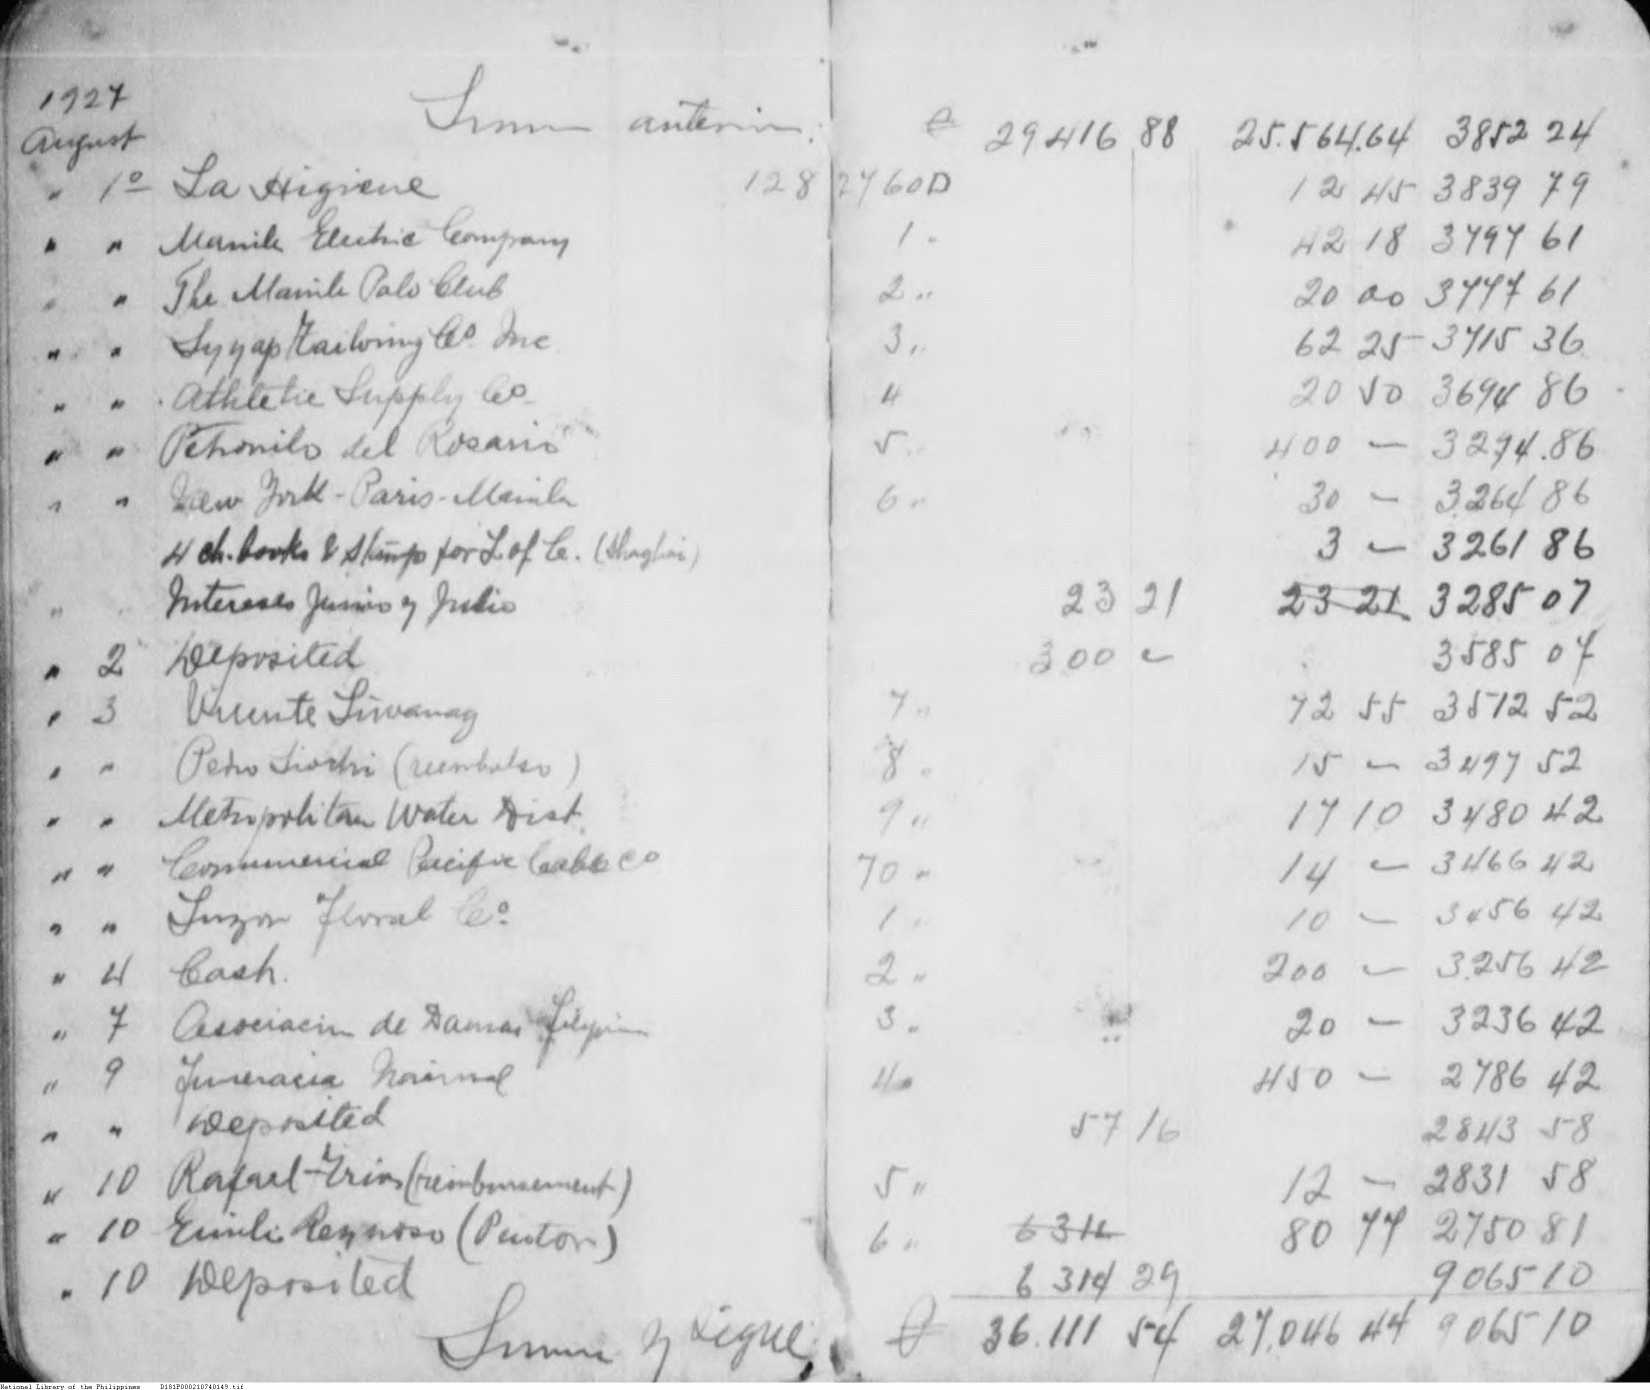 1927
August Suma anterior ₱ 29416 88 25.564.64 3852 24
" 1º La Higiene 128 2760D 12 45 3839 79
" " Manila Electric Company 1 " 42 18 3797 61
" " The Manila Polo Club 2 " 20 00 3777 61
" " Syyap Tailoring Co. Inc 3 " 62 25 3715 36
" " Athletic Supply Co 4 20 50 3694 86
" " Petronilo del Rosario 5 " 400 — 3294.86
" " New York-Paris-Manila 6 " 30 — 3264 86
4 ch. books & stamps for L of C. (Shaghai) 3 — 3261 86
" Intereses Junio y Julio 23 21 23 21 3285 07
" 2 Deposited 300 — 3585 07
" 3 Vicente Liwanag 7 " 72 55 3512 52
" " Pedro Siochi (reembolso) 8 " 15 — 3497 52
" " Metropolitan Water Dist. 9 " 17 10 3480 42
" " Commercial Pacific Cable Co 70 " 14 — 3466 42
" " Luzon Floral Co. 1 " 10 — 3456 42
" 4 Cash. 2 " 200 — 3256 42
" 7 Asociacion de Damas Filipinas 3 " 20 — 3236 42
" 9 Funeraria Nacional 4 " 450 — 2786 42
" " Deposited 57 16 2843 58
" 10 Rafael Trias (reimbursement) 5 " 12 — 2831 58
" 10 Emilio Reynoso (Pintor) 6 " 6314 80 77 2750 81
" 10 Deposited 6 314 29 9065 10
Suma y Sigue ₱ 36.111 54 27,046 44 9065 10
National Library of the Philippines D181P000210740149.tif